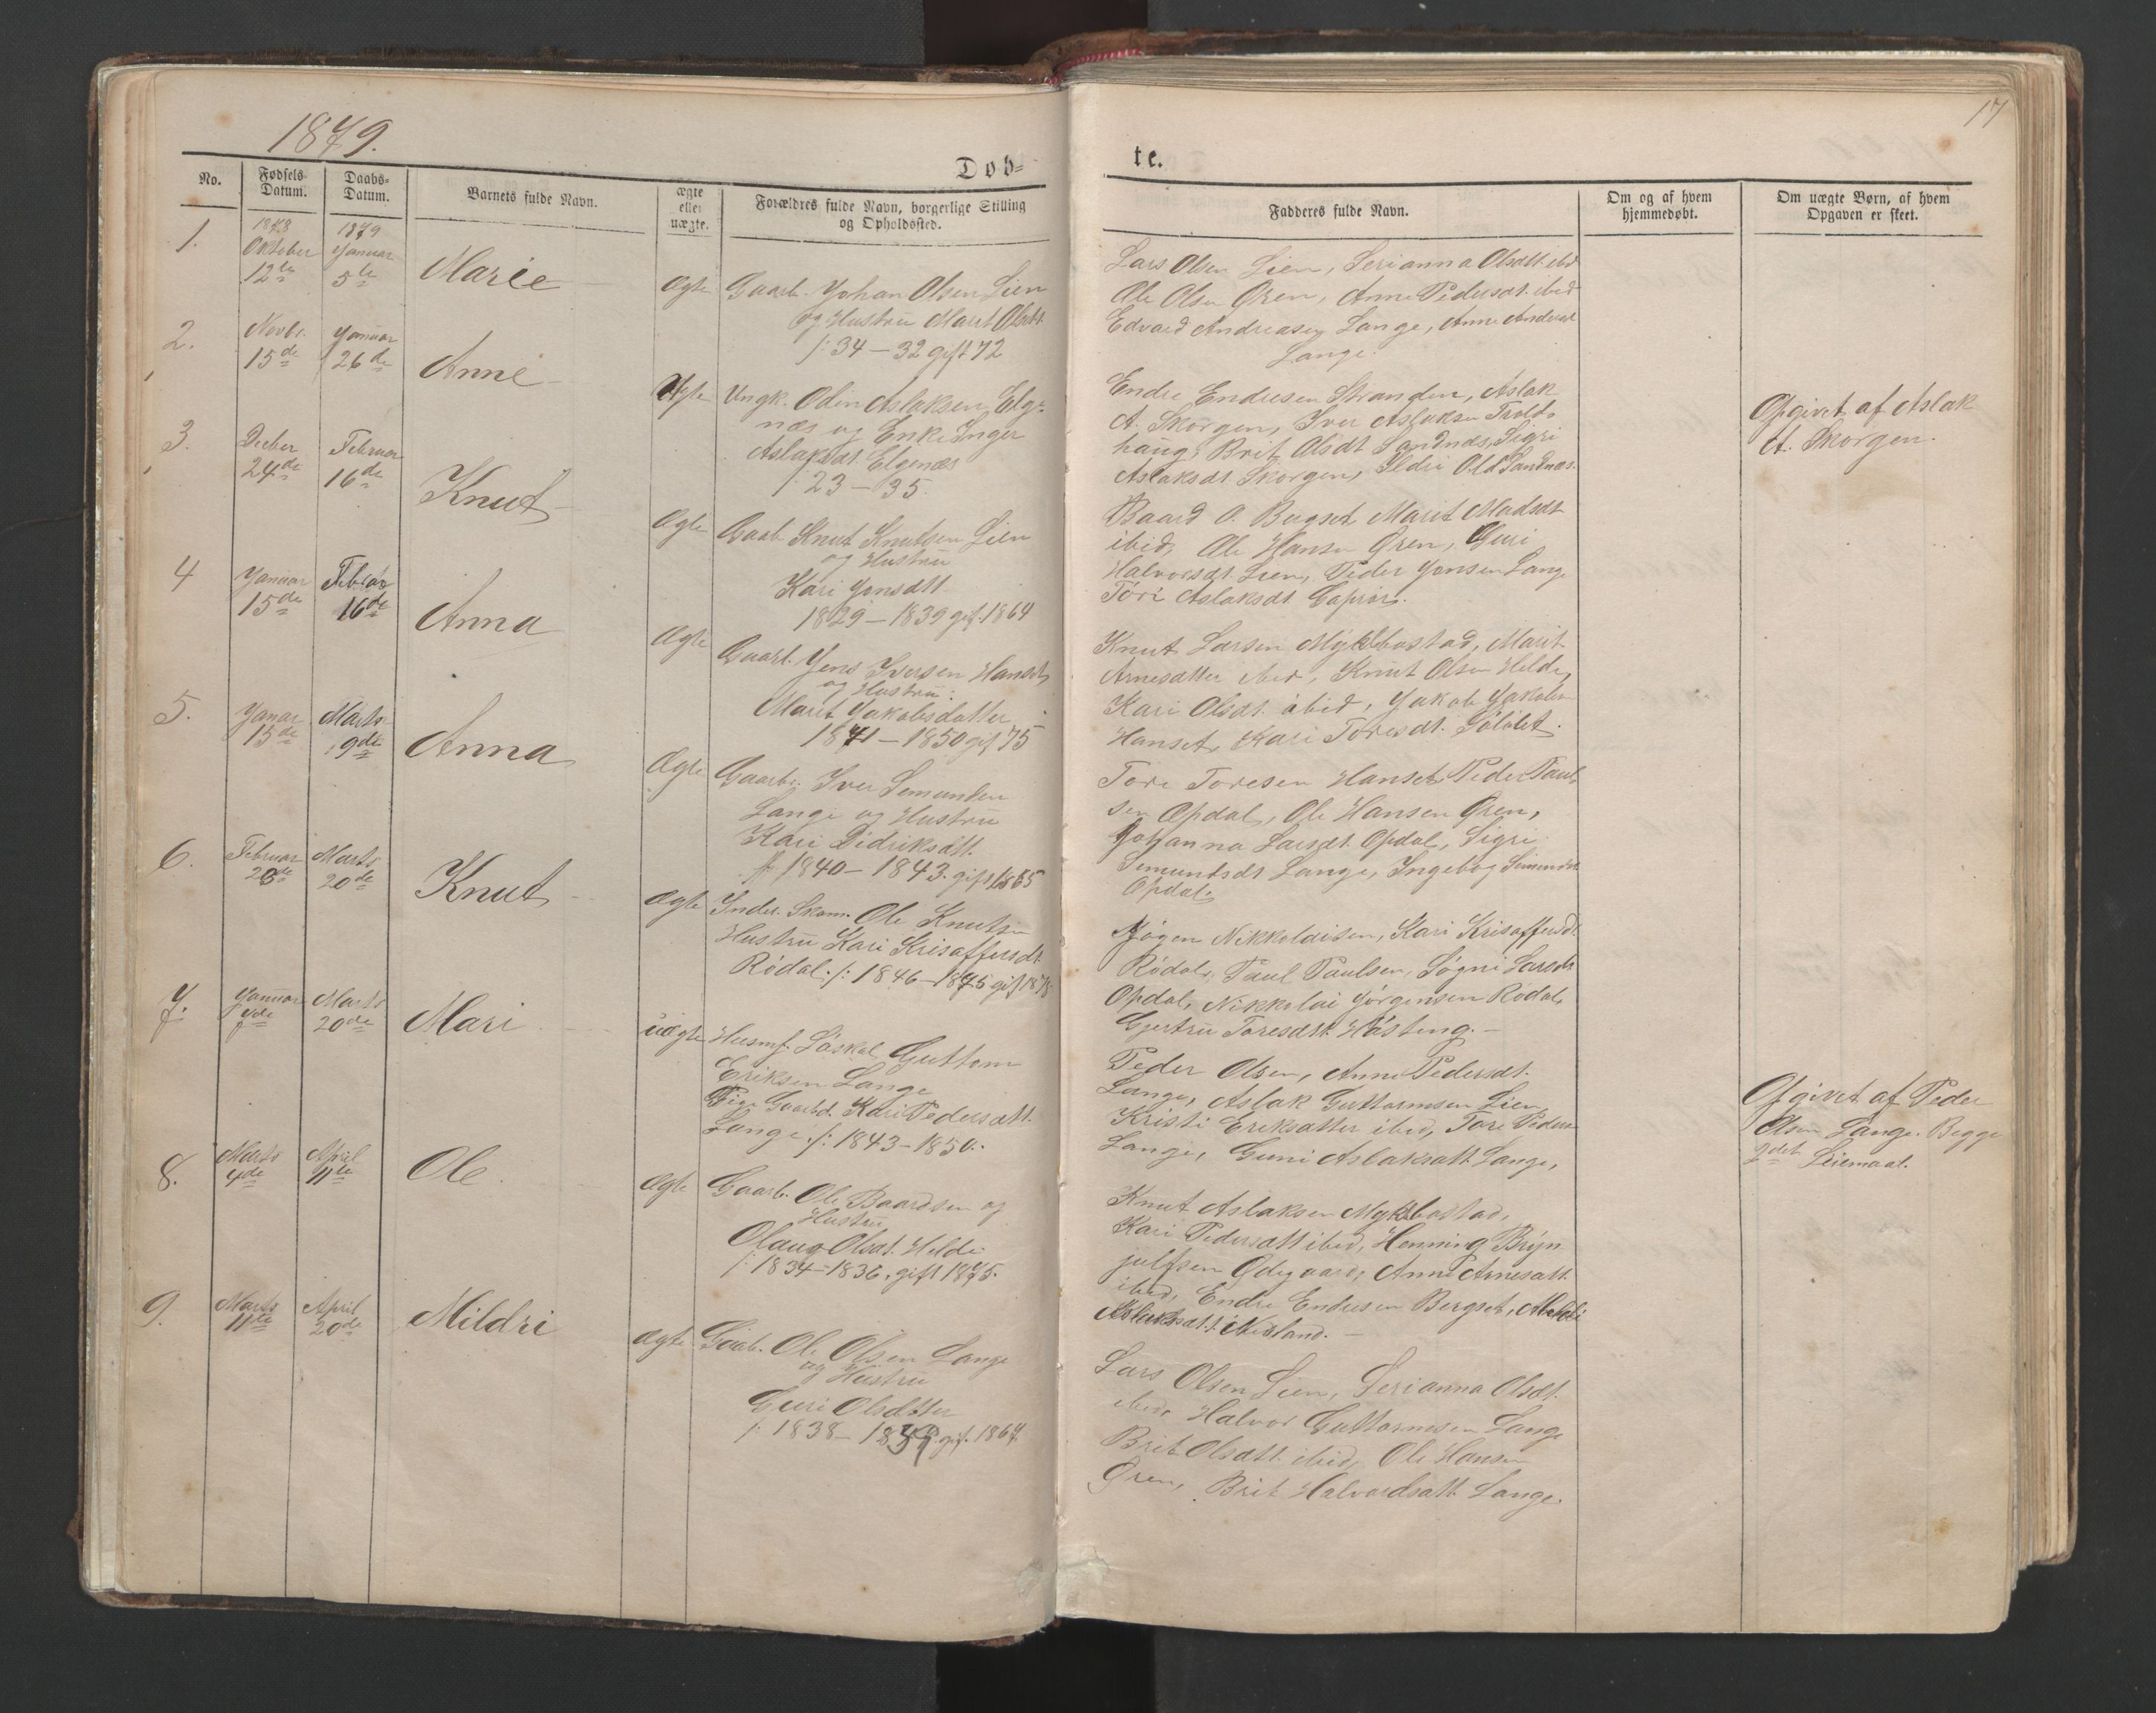 1879.
17
Døb-
te.
No.
Fødsels-
Datum.
Daabs-
Datum.
Barnets fulde Navn.
ægte
eller
uægte.
Forældres fulde Navn, borgerlige Stilling
og Opholdssted.
Fadderes fulde Navn.
Om og af hvem
hjemmedøbt.
Om uægte Børn, af hvem
Opgaven er skeet.
1.
1878
Oktober
12te
1879
Januar
5te
Marie
Ægte
Gaarb. Johan Olsen Lien
og Hustru Marit Olsdt.
/: 34 – 32 gift 72
Lars Olsen Lien, Serianna Olsdt. ibd
Ole Olsen Øren, Anne Pedersdt. ibid
Edvard Andreasen Lange, Anne Andersd
Lange.
2.
Novbr.
15de
Januar
26de
Anne
Ægte
Ungk. Oden Aslaksen Elg-
næs og Enke Inger
Aslaksdt. Elgenæs
/: 23 – 35.
Endre Endresen Stranden, Aslak
A. Skorgen, Iver Aslaksen Trold-
haug, Brit Olsdt Sandnæs, Sigri
Aslaksdt Skorgen, Ildri Olsd Sandnæs.
Opgivet af Aslak
A. Skorgen.
3.
Decber
24de
Februar
16de
Knut
Ægte
Gaarb. Knut Knutsen Lien
og Hustru
Kari Jonsdtt.
1829 – 1839 gif. 1864
Baard O. Bugset, Marit Madsdt
ibid, Ole Hansen Øren, Guri
Halvorsdt. Lien, Peder Jonsen Lange
Töri Aslaksdt.
4
Januar
15de
Februar
16de
Anna
Ægte
Gaarb. Jens Iversen Hanset
og Hustru:
Marit Jakobsdatter
1841 – 1850 gif 75
Knut Larsen Myklebostad, Marit
Arnesdtter ibid, Knut Olsen Helde,
Kari Olsdt. ibid, Jakob Jakobsen
Hanset, Kari Toresdt.
5.
Janar
15de
Marts
9de
Anna
Ægte
Gaarb. Iver Semundsen
Lange og Hustru
Kari Didriksdtt.
/: 1840 – 1843. gift 1865
Tore Toresen Hanset, Peder Paul-
sen Opdal, Ole Hansen Øren,
Johanna Larsdt. Opdal, Sigri
Semundsdt Lange, Ingebog Simensdt
Opdal,
6.
Februar
Marts
20de
Knut
Ægte
Inder. Skom. Ole Knutsen
Hustru Kari Krisaffersdt.
Rödal. /: 1846 – 1845 gif 1878
Jögen Nikkolaisen, Kari Krisaffersdt.
Rödal, Paul Paulsen, Sögni Larsdt
Opdal, Nikkolai Jörgensen Rödal,
Gjertru Toresdtt.
7.
Januar
Marts
20de
Mari
uægte
Husmf. Guttorm
Eriksen Lange
Pige Gaarbd. Kari Pedersdtt.
Lange. /: 1843 – 1850.
Peder Olsen, Anne Pedersdt.
Lange, Aslak Guttormsen Lien,
Kristi Eriksdtter ibid, Tore Peders
Lange, Guni Aslaksdtt. Lange,
Opgivet af Peder
Olsen Lange. Begge
2det Leiemaal.
8.
Marts
4de
April
11te
Ole
Ægte
Gaarb. Ole Baardsen og
Hustru
Olaug Olsdt. Helde
/: 1834 – 1836, gift 1875.
Knut Aslaksen Myklebostad,
Kari Pedersdtt ibid, Henning Bryn-
julfsen Ödegaard, Anne Arnesdtt.
ibid, Endre Endresen Bergset,
Aslaksdtt. Nesland.
9.
Marts
11te
April
20de
Mildri
Ægte
Gaab. Ole Olsen Lange
og Hustru
Guri Olsdtter
/: 1838 – 1839 gif. 1864
Lars Olsen Lien, Serianna Olsdt.
ibid, Halvor Guttormsen Lange
Brit Olsdtt. ibid, Ole Hansen
Øren, Brit Halvordsdtt. Lange.